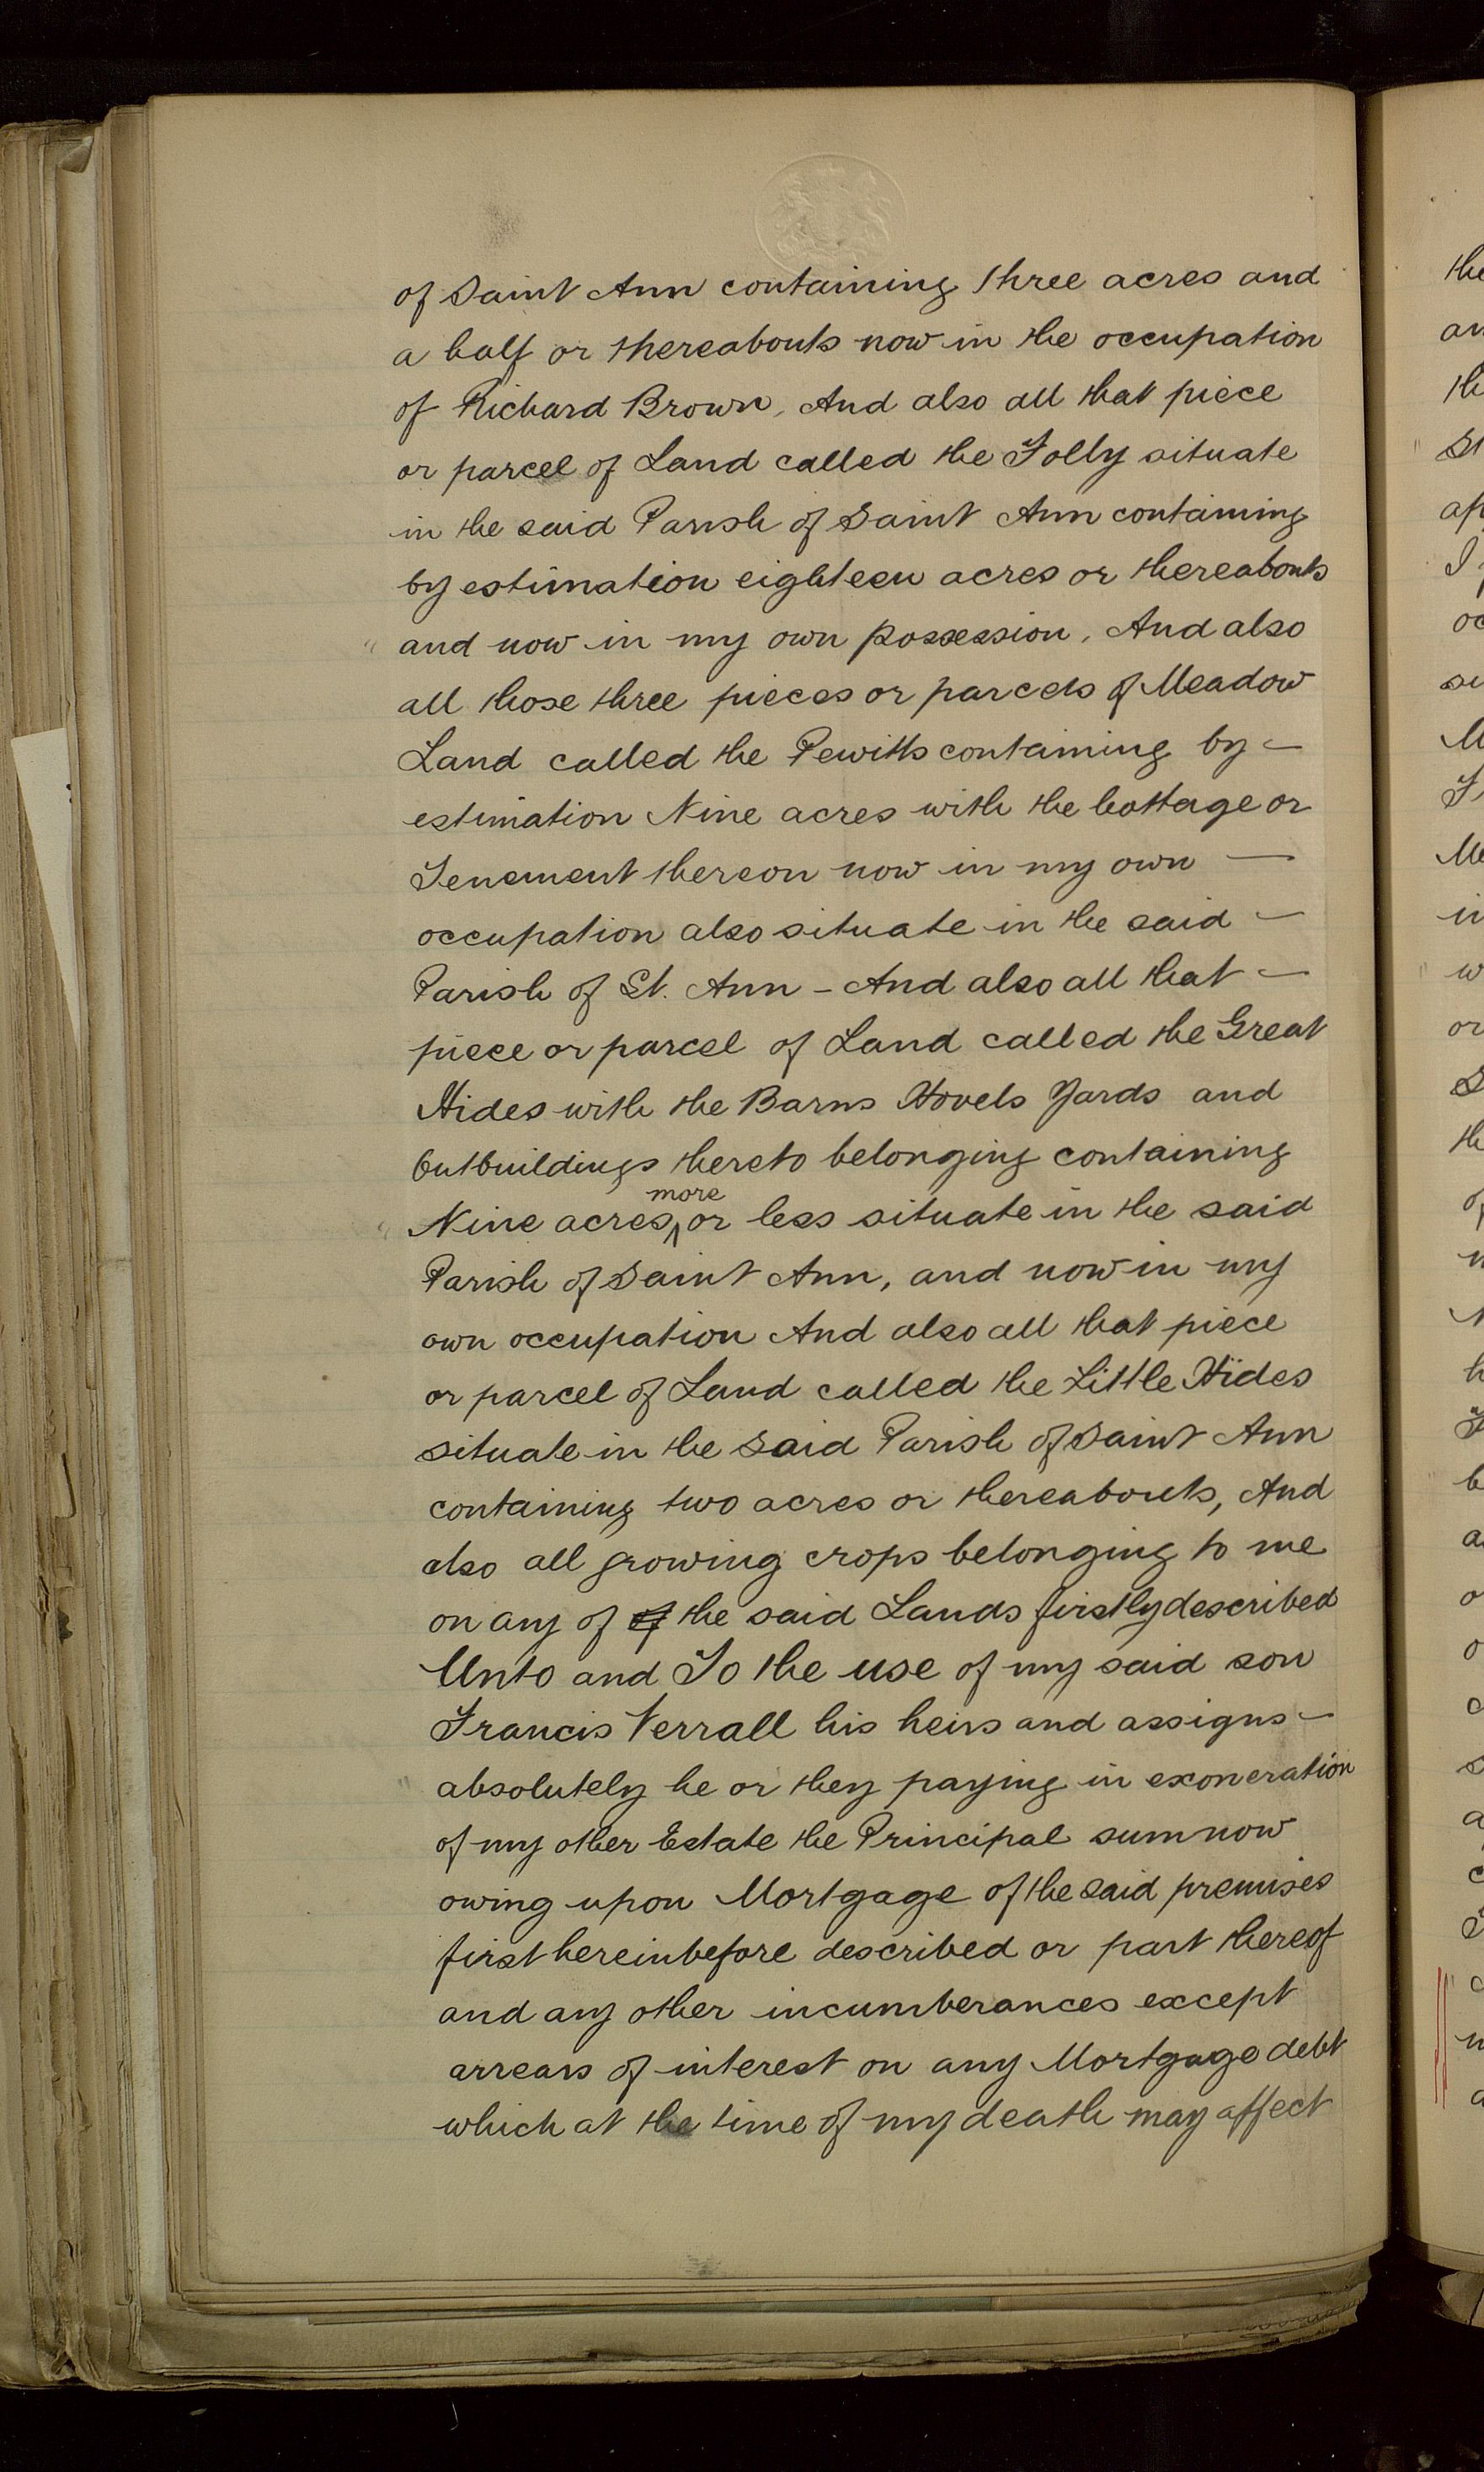 of Saint Ann containing three acres and
a half or thereabouts now in the occupation
of Richard Brown, And also all that piece
or parcel of Land called the Folly situate
in the said Parish of Saint Ann containing
by estimation eighteen acres or thereabouts
and now in my own possession, And also
all those three pieces or parcels of Meadow
Land called the Pewitts containing by –
estimation Nine acres with the Cottage or
Tenement thereon now in my own –
occupation also situate in the said –
Parish of St. Ann – And also all that –
piece or parcel of Land called the Great
Hides with the Barns Hovels Yards and
Outbuildings thereto belonging containing
Nine acres more or less situate in the said
Parish of Saint Ann, and now in my
own occupation And also all that piece
or parcel of Land called the Little Hides
situate in the said Parish of Saint Ann
containing two acres or thereabouts, And
also all growing crops belonging to me
on any of of the said Lands firstly described
Unto and To the use of my said son
Francis Verrall his heirs and assigns –
absolutely he or they paying in exoneration
of my other Estate the Principal sum now
owing upon Mortgage of the said premises
first hereinbefore described or part thereof
and any other incumberances except
arrears of interest on any Mortgage debt
which at the time of my death may affect